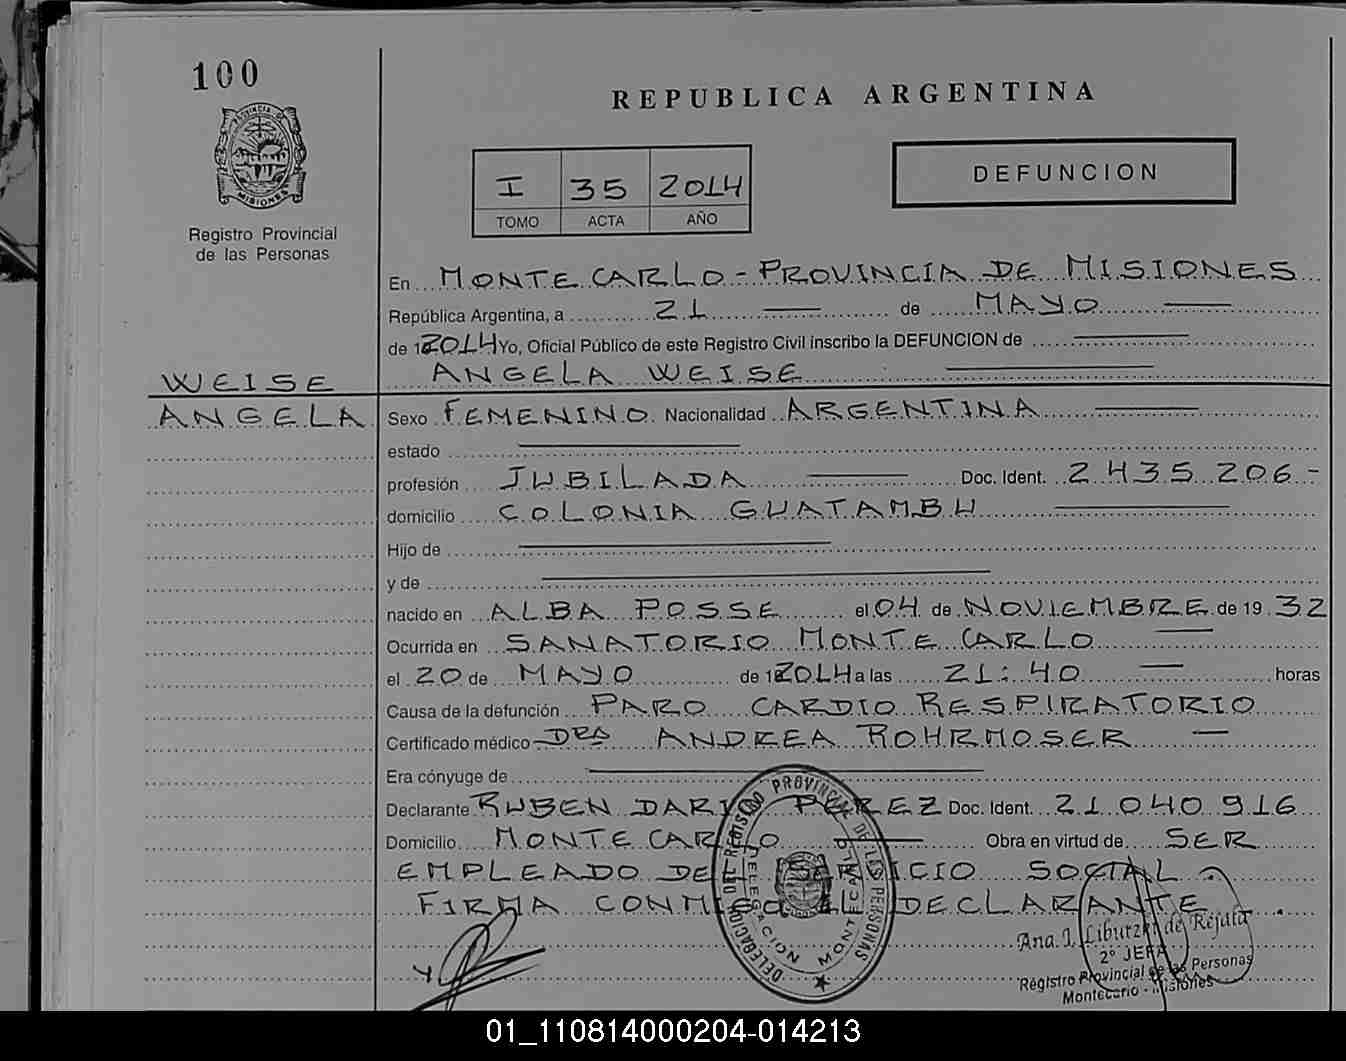 100
REPUBLICA ARGENTINA
PROVINCIA DE
MISIONES
Registro Provincial
de las Personas
I 35 2014
TOMO ACTA AÑO
DEFUNCION
En MONTECARLO - PROVINCIA DE MISIONES
República Argentina, a 21 de MAYO
de 2014 Yo, Oficial Público de este Registro Civil inscribo la DEFUNCION de
ANGELA WEISE
WEISE
ANGELA
Sexo FEMENINO Nacionalidad ARGENTINA
estado
profesión JUBILADA Doc. Ident. 2.435.206.-
domicilio COLONIA GUATAMBU
Hijo de
y de
nacido en ALBA POSSE el 04 de NOVIEMBRE de 19 32
Ocurrida en SANATORIO MONTECARLO
el 20 de MAYO de 2014 a las 21:40 horas
Causa de la defunción PARO CARDIO RESPIRATORIO
Certificado médico DRA ANDREA ROHRMOSER
Era cónyuge de
Declarante RUBEN DARIO PEREZ Doc. Ident. 21.040.916
Domicilio MONTECARLO Obra en virtud de SER
EMPLEADO DEL SERVICIO SOCIAL.
FIRMA CONMIGO EL DECLARANTE.
DELEGACION DEL REGISTRO PROVINCIAL DE LAS PERSONAS
DELEGACION MONTECARLO
Ana. I. de Rejala
2° JEFA
Registro Provincial de las Personas
Montecarlo - Misiones
01_110814000204-014213